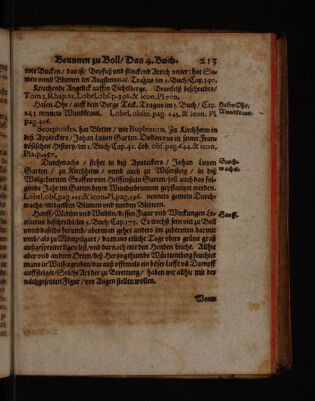 Brunnen zu Boll / Das 4. Buch. 213
vott Bucken / das ist / Beyfuß und stinckend Attich under: hat Sa-
mend Blumen im Augustmonat. Tragus in 1. Buch / Cap. 140.
Kriechende Angelick auffm Eichelberge. Brunfels beschreibts /
Tom. 3. Rhap. 82. Lobel. Obs. Pl. pag. 398. & icon. Pl. 700.
Hasen Ohr / auff dem Berge Teck. Tragus in 1. Buch / Cap. Hasen Ohr.
243. nennets Wundkraut. Lobel. obser. pag. 243. & icon. Pl. Wundkraut.
pag. 456.
Scorpioides, hat Bletter / wie Bupleuron. Zu Kirchheim in
deß Apoteckers / Johan Lutzen Garten. Dodonæus in seiner Fran-
tzösischen History / im 1. Buch / Cap. 41. Lob. obs. pag. 644. & icon.
Pl. pag. 457.
Durchwachs / stehet in deß Apoteckers / Johan Lutzen Durch-
Garten / zu Kirchheim / vnnd auch zu Wisenstaig / in deß wachs.
Wolgebornen Graffen von Helffenstein Garten / soll auch das fol-
gende Jahr im Garten beym Wunderbrunnen gepflantzet werden.
Lobel. obs. pag. 215. & icon. Pl. pag. 396. nennets gemein Durch-
wachs / mit gelben Blumen vnd runden Blettern.
Hanff / Mänlin und Weiblin / dessen Figur und Würckungen Ga- Hanff.
lenus beschreibet im 1. Buch / Cap. 175. Es wechst sein viel zu Boll
und daselbs herumb / aberman gehet anders im zubereiten darmit
vmb / als zu Mömpelgart / da man etliche Tage obers grüne graß
außspreitet ligen lest / vnd darnach mit den Henden bricht. Allhie
aber und andern Orten / deß Hertzogthumbs Württemberg feuchtet
mans in Wassergruben / darauß offtmals ein böser Lufft vñ Dampff
auffsteiget / Solche Art der Zubereitung / haben wir allhie mit der
nächgesetzten Figur / vor Augen stellen wollen.
Wann